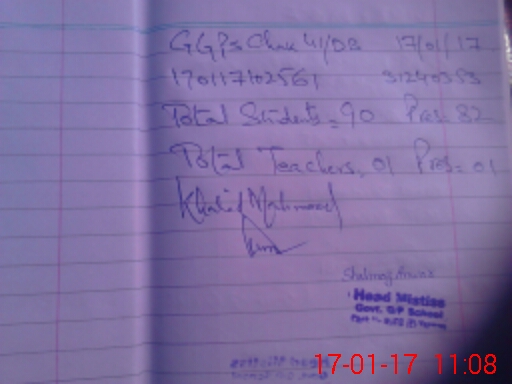 GGPS Chak 41/DB 17/01/17
170117102561 31240353
Total Students = 90 Pres = 82
Total Teachers = 01 Pres = 01
Khalid Mahmood
Head Mistiss
Govt. GP School
17-01-17 11:08